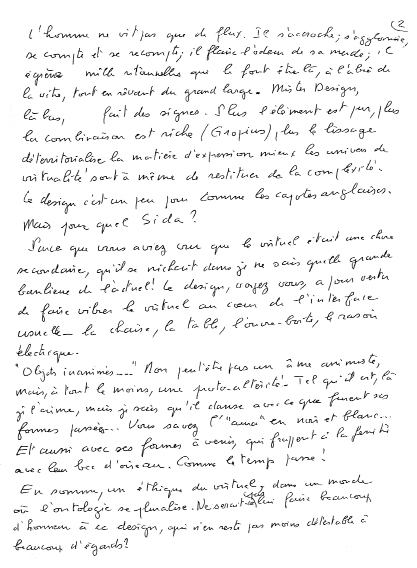 (2
L'homme ne vit pas que de flux. Il s'accroche, s'agglomère,
se compte et se recompte; il flaire l'odeur de sa meute; il
égrène mille ritournelles que le font être là, à l'abri de
la vite, tout en rêvant du grand large. Mister Design,
là bas, fait des signes. Plus l'élément est pur, plus
la combinaison est riche (Gropius), plus le lissage
déterritorialise la matière d'expression mieux les univers de
virtualité sont à même de restituer de la complexité.
Le design c'est un peu pour comme les capotes anglaises.
Mais pour quel Sida?
Parce que vous aviez cru que le virtuel était une chose
secondaire, qu'il se nichait dans je ne sais quelle grande
banlieue de l'actuel! Le design, voyez vous, a pour vertu
de faire vibrer le virtuel au cœur de l'interface
usuelle – la chaise, la table, l'ouvre-boîte, le rasoir
électrique.
"Objets inanimés..." Non peut être pas un âme animiste,
mais, à tout le moins, une proto-altérité. Tel qu'il est, là
je l'aime, mais je sais qu'il danse avec ce que furent ses
formes passées... Vous savez l' en noir et blanc...
Et aussi avec ses formes à venir, qui frappent à la fenêtre
avec leur bec d'oiseau. Comme le temps passe!
En somme, un éthique du virtuel, dans un monde
où l'ontologie se pluralise. Ne serait-ce pas lui faire beaucoup
d'honneur à ce design, qui n'en reste pas moins détestable à
beaucoup d'égards?